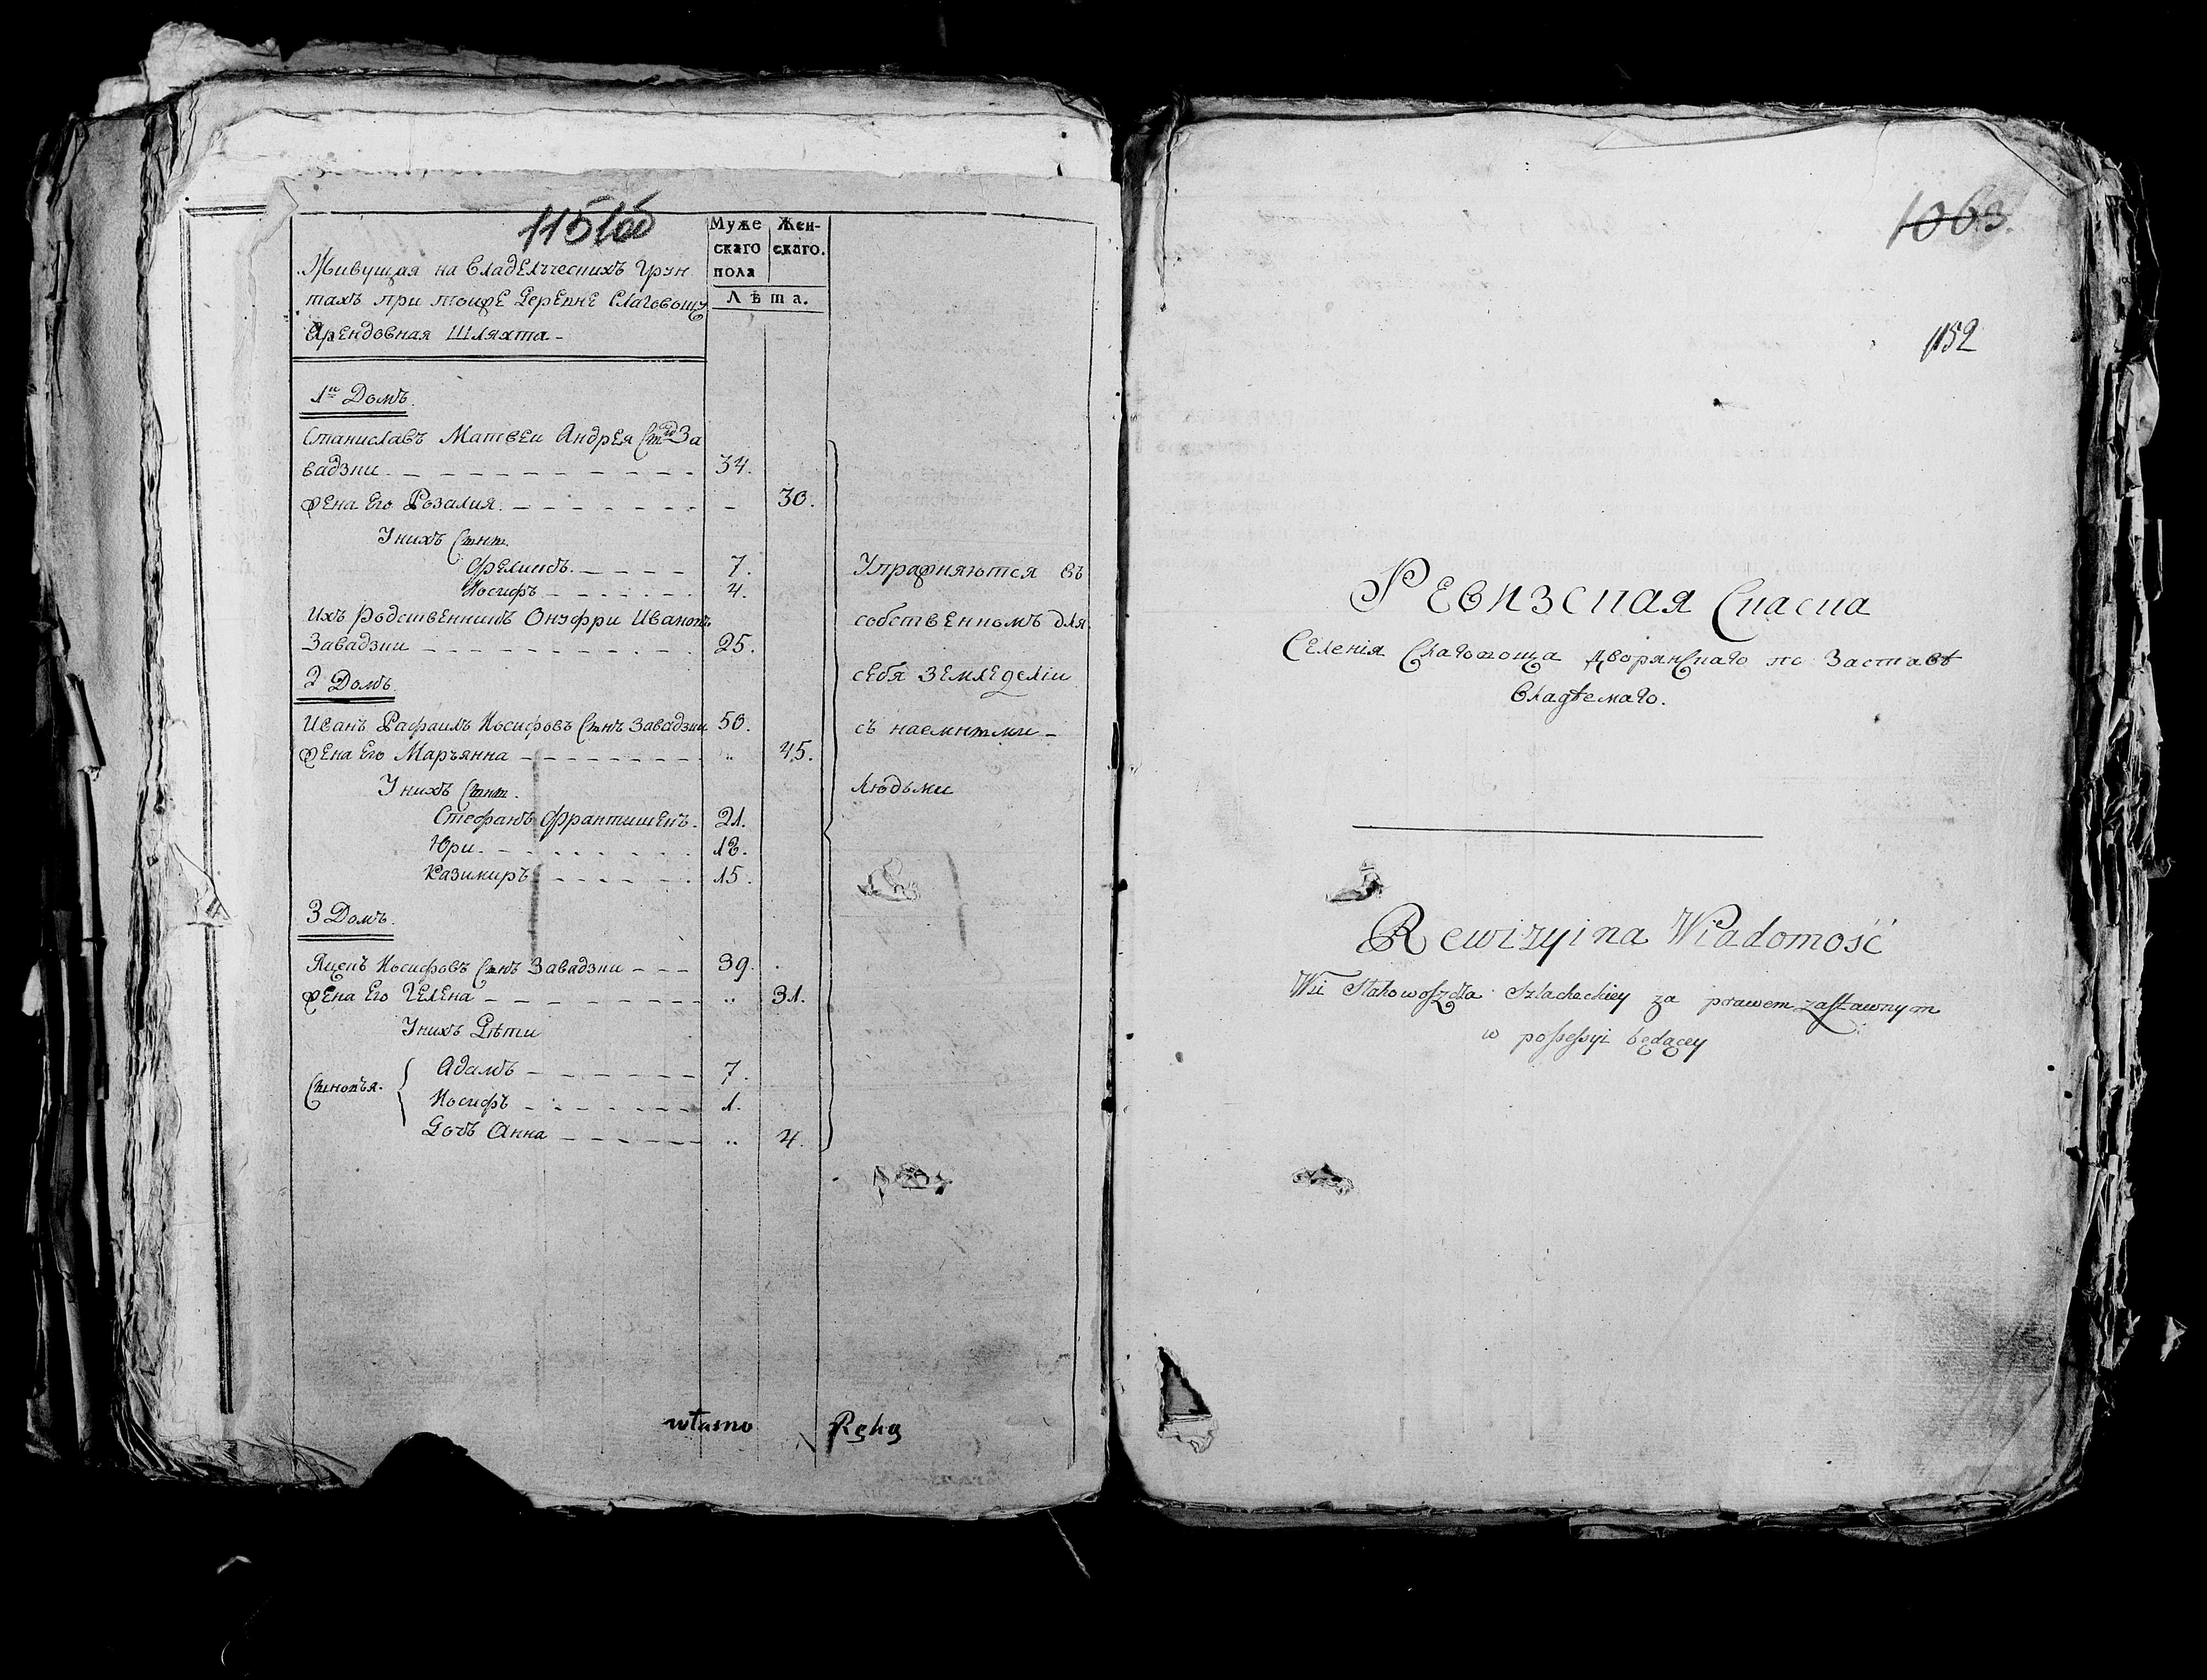 Муже
скаго
пола
Жен-
скаго.
Лѣта.
Живущая на владелческихъ грун
тахъ при тоиже деревне Слаговощу
Арендовная Шляхта -
1й Домъ.
Станиславъ Матвеи Андрея Сынъ За
вадзки 34.
жена Его Розалия. 30.
У нихъ Сыны
Феликсъ. 7.
Иосифъ 4.
Ихъ родственникъ Онуфри Ивановъ
Завадзки 25.
2 Домъ.
Иванъ Рафаилъ Иосифовъ Сынъ Завадзки 50.
жена Его Марьянна 45.
У нихъ Сыны.
Стефанъ Франтишекъ. 21.
Юри. 18.
Казимиръ 15.
3 Домъ.
Яцекъ Иосифовъ Сынъ Завадзки 39.
жена Его Гелена 31.
У нихъ Дѣти
Сыновья.
Адамъ 7.
Иосифъ 1.
Дочь Анна 4.
Упражняются въ
собственномъ для
себя земледелии
съ наемными -
людьми
własno Ręką
1063.
1152
Ревизская Сказка
Селения Слаговоща Дворянскаго по Заставѣ
владѣемаго.
Rewizyina Wiadomość
Wsi Słahowoszcza Szlacheckiey za prawem zastawnym
w possessyi będącey